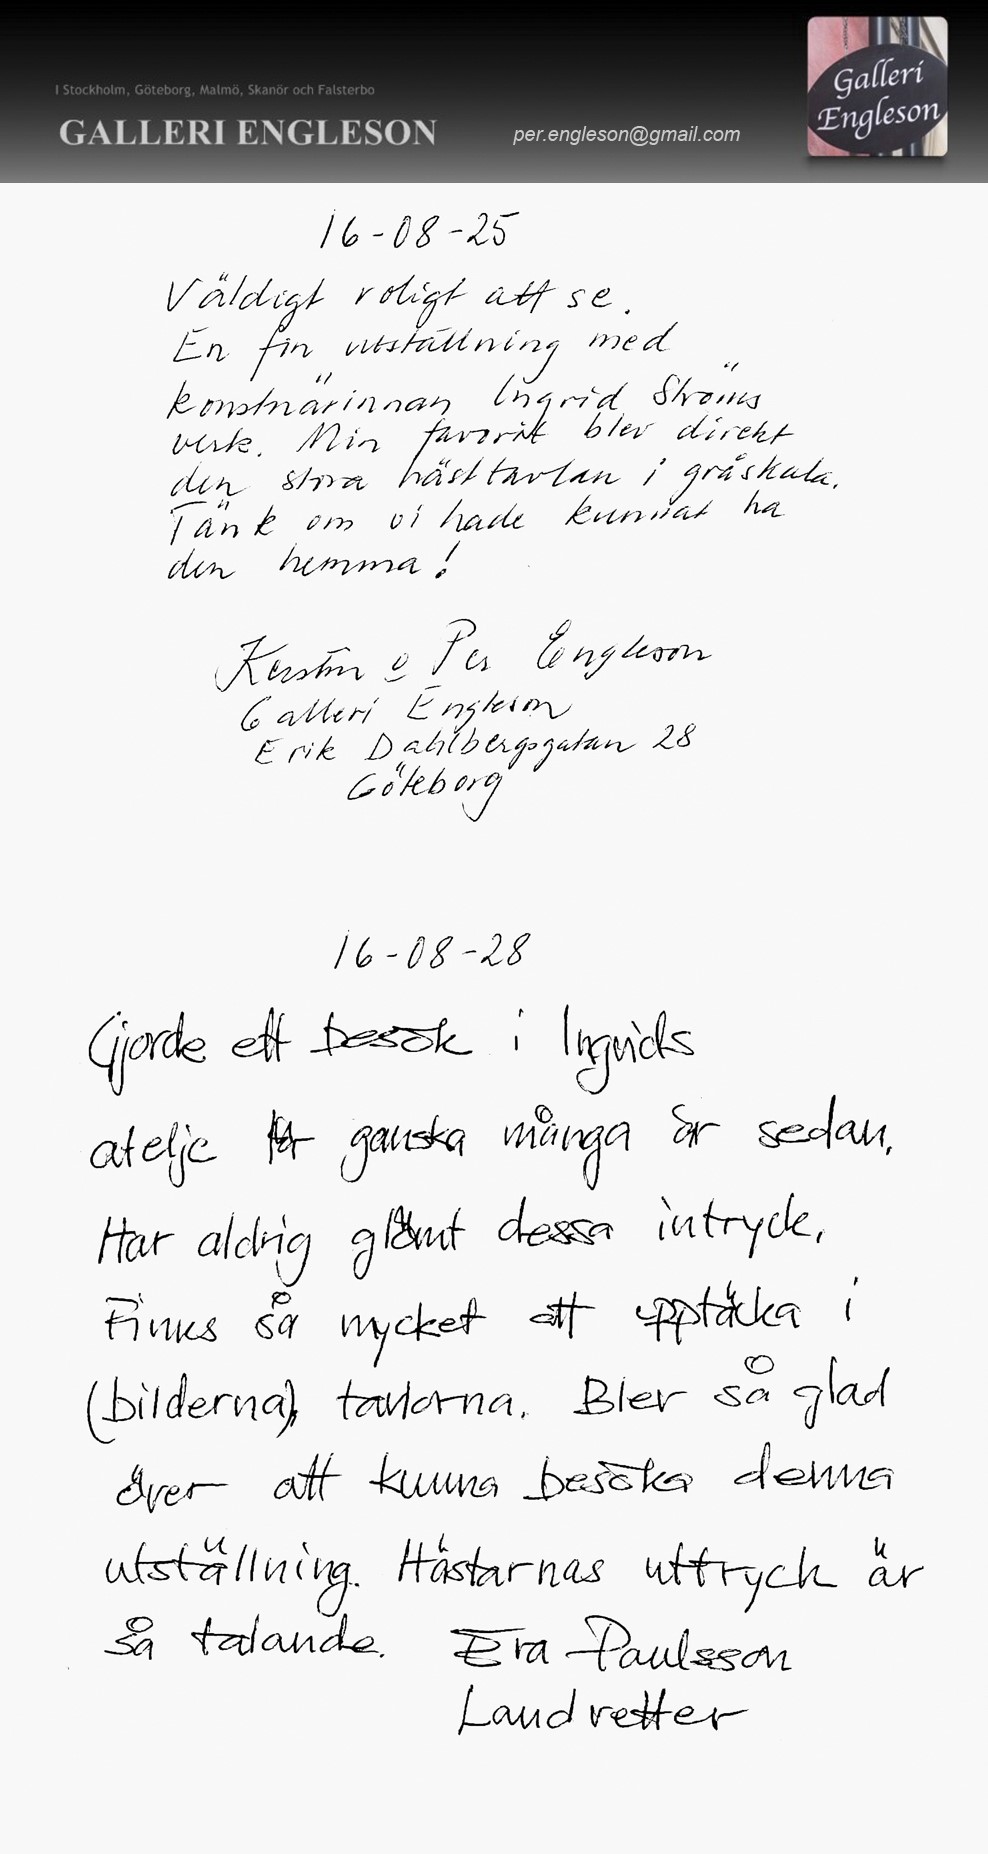 I Stockholm, Göteborg, Malmö, Skanör och Falsterbo
GALLERI ENGLESON
per.engleson@gmail.com
Galleri
Engleson
16-08-25
Väldigt roligt att se.
En fin utställning med
konstnärinnan Ingrid Ströms
verk. Min favorit blev direkt
den stora hästtavlan i gråskala.
Tänk om vi hade kunnat ha
den hemma!
Kerstin o Per Engleson
Galleri Engleson
Erik Dahlbergsgatan 28
Göteborg
16-08-28
Gjorde ett besök i Ingrids
atelje för ganska många år sedan.
Har aldrig glömt dessa intryck.
Finns så mycket att upptäcka i
(bilderna), tavlorna. Blev så glad
över att kunna besöka denna
utställning. Hästarnas uttryck är
så talande. Eva Paulsson
Landvetter